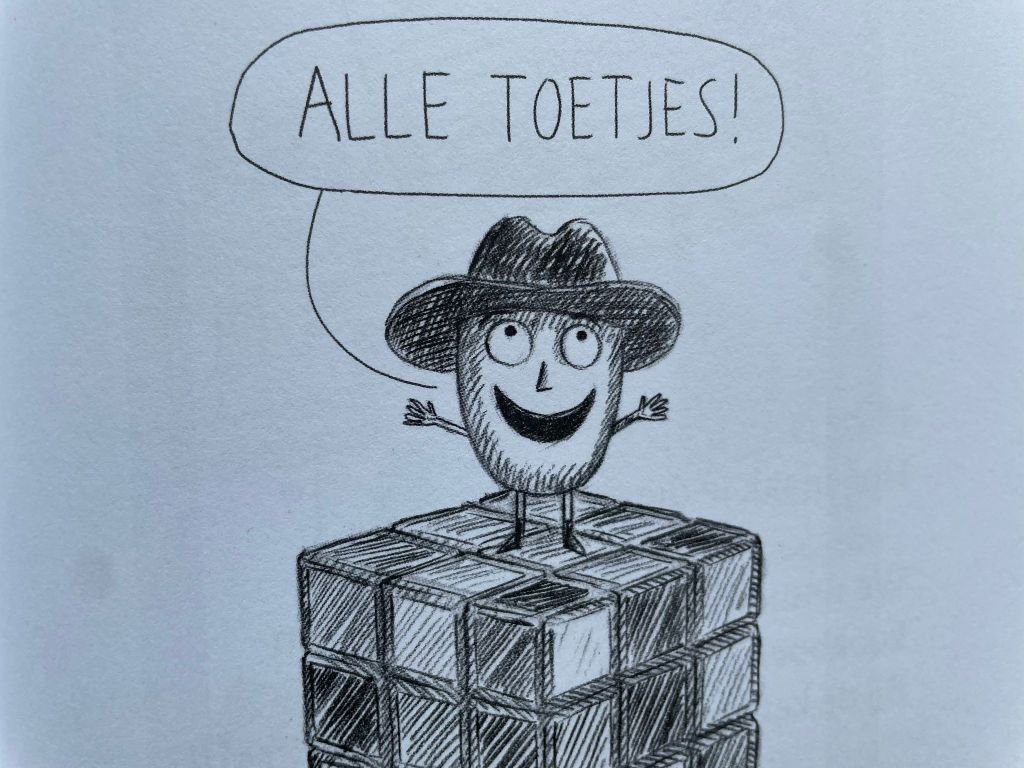 ALLE TOETJES!